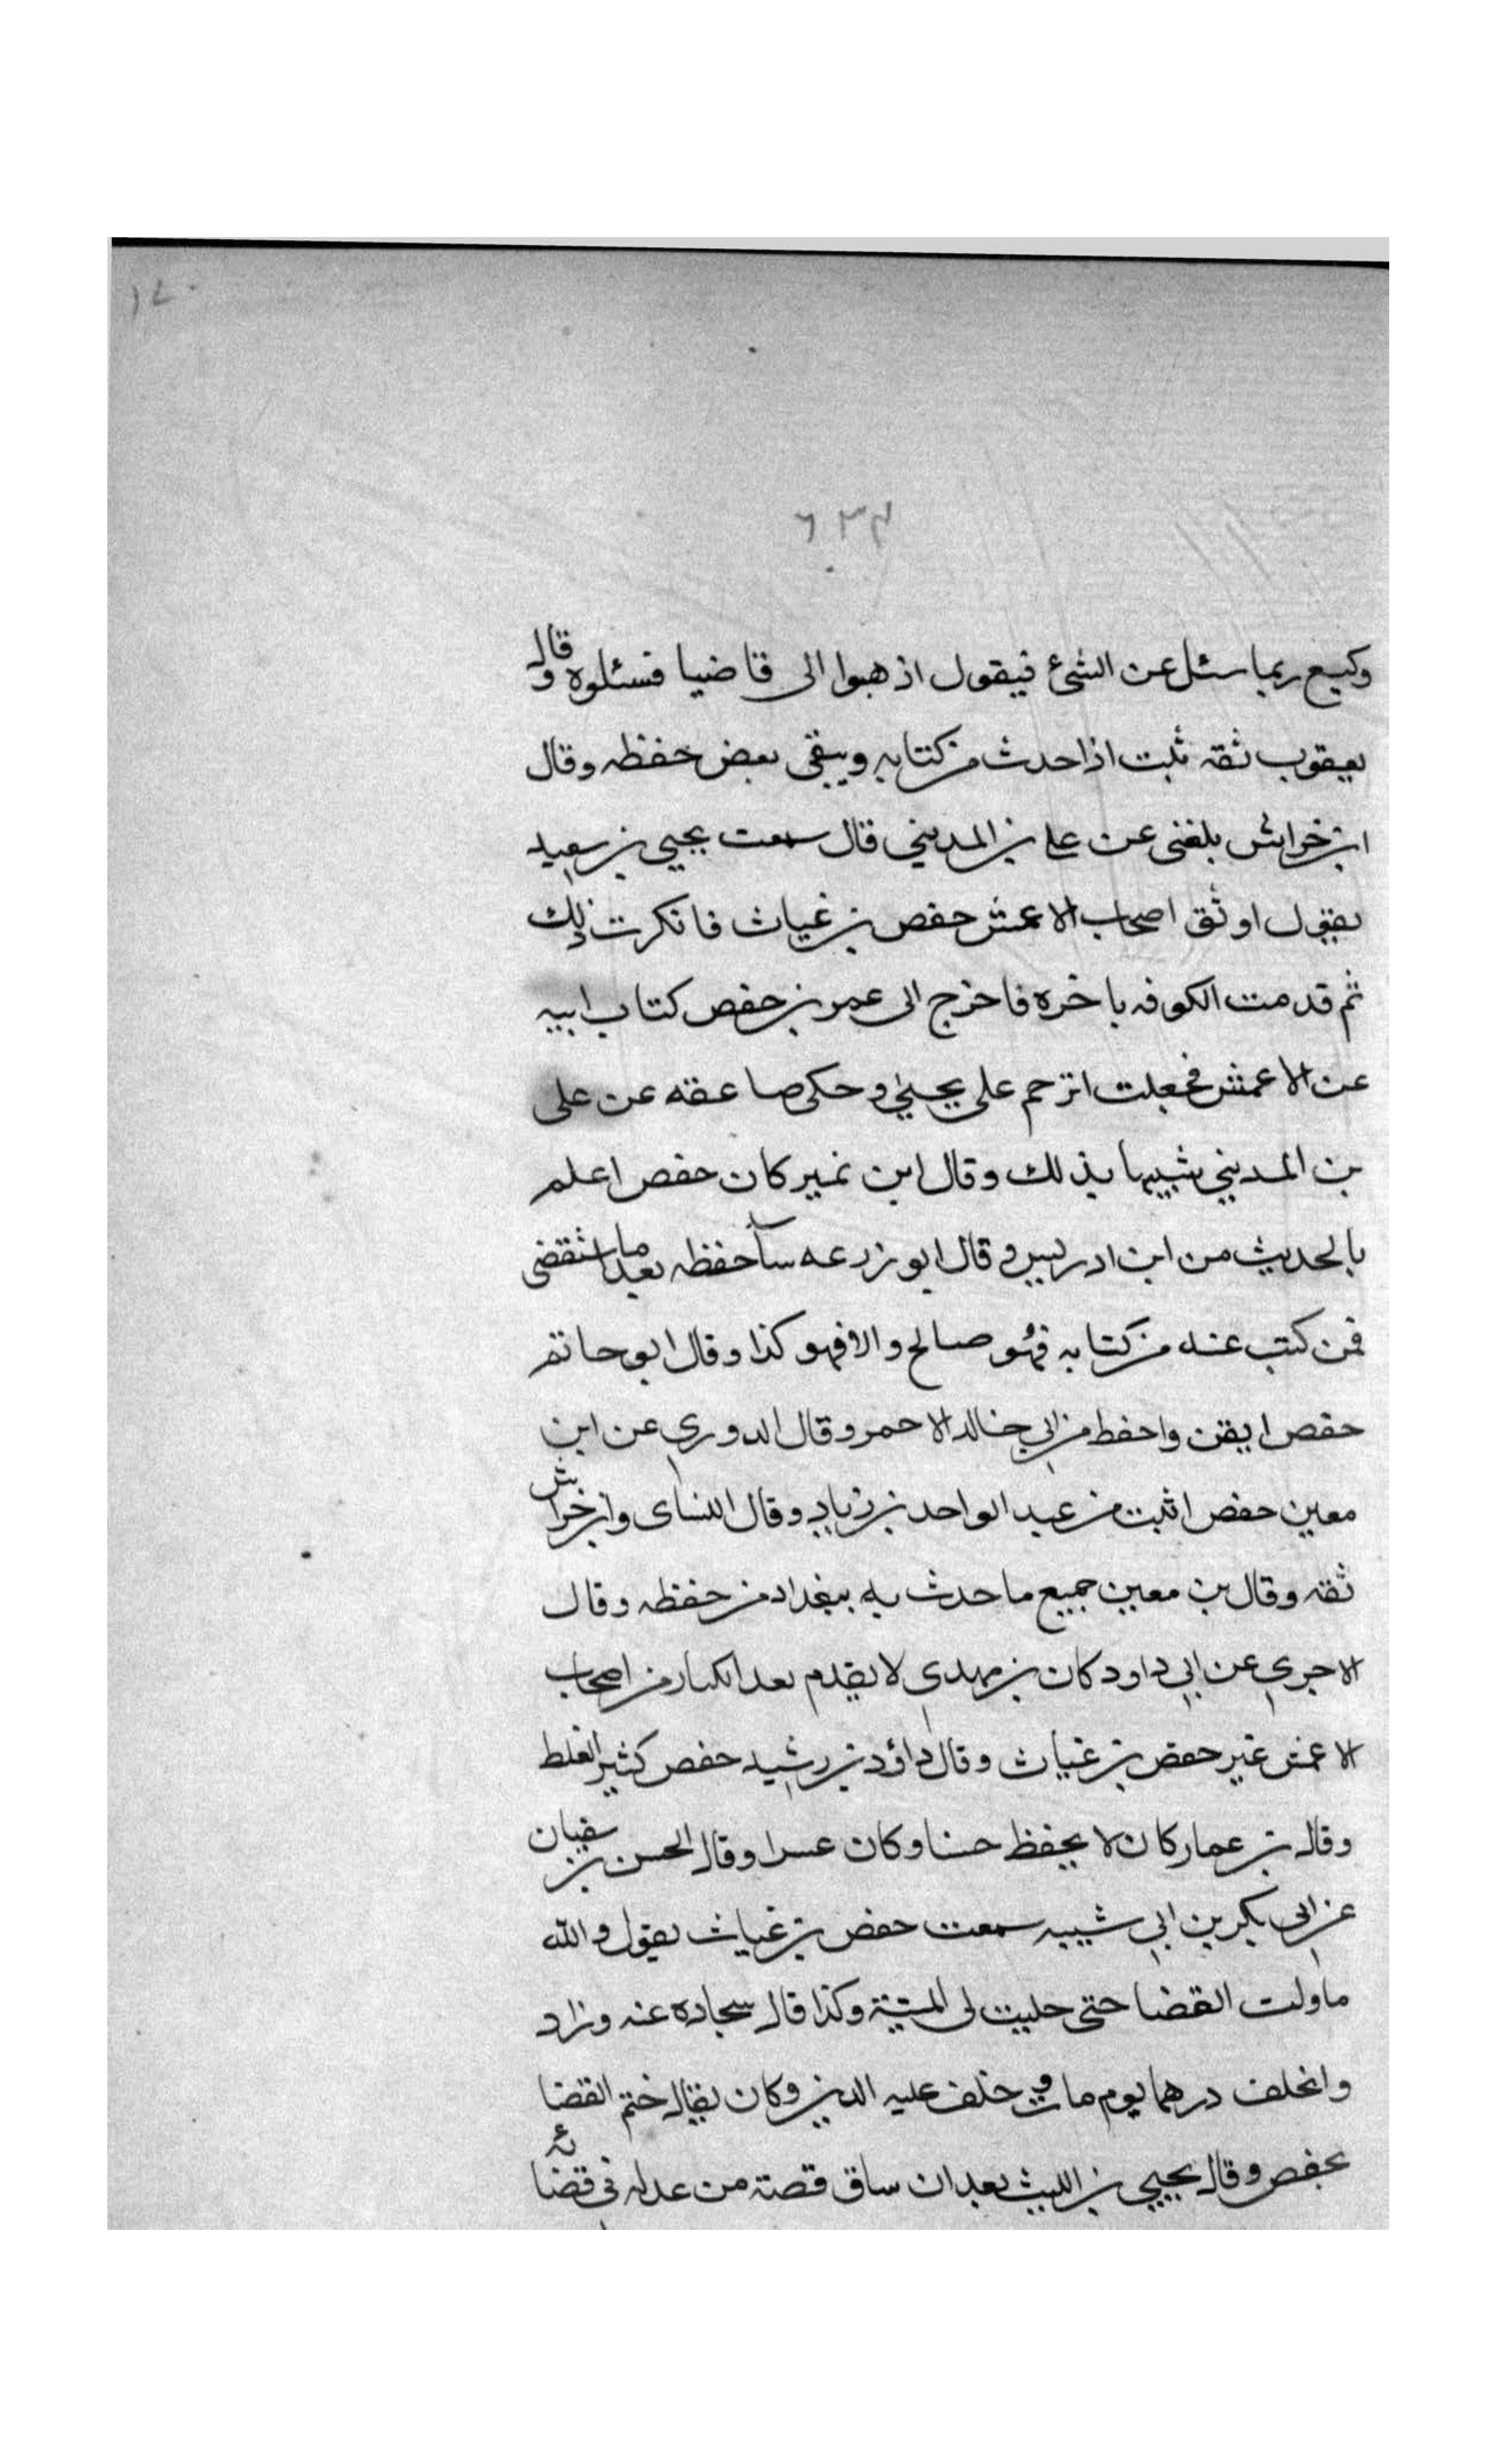 ٦٣٤
وكيع ربما سئل عن الشئ فيقول اذهبوا الى قاضيا فسئلوه وقال
يعقوب ثقه ثبت اذا حدث من كتابه ويتقى بعض حفظه وقال
ابن خراش بلغنى عن على بن المديني قال سمعت يحيى بن سعيد
يقول اوثق اصحاب الاعمش حفص بن غياث فانكرت ذلك
ثم قدمت الكوفه باخره فاخرج الى عمر بن حفص كتاب ابيه
عن الاعمش فجعلت اترحم على يحيى وحكى صاعقه عن على
بن المديني شبيها بذلك وقال ابن نمير كان حفص اعلم
بالحديث من ابن ادريس وقال ابو زرعه سآ حفظه بعد ما استقضى
فمن كتب عنه من كتابه فهو صالح والا فهو كذا وقال ابو حاتم
حفص ايقن واحفط من ابي خالد الاحمر وقال الدوري عن ابن
معين حفص اثبت من عبد الواحد بن زياد وقال النساى وابن خراش
ثقه وقال بن معين جميع ما حدث به ببغداد من حفظه وقال
الاجري عن ابي داود كان بن مهدي لا يقدم بعد الكبار من اصحاب
الاعمش غير حفص بن غياث وقال داؤد بن رشيد حفص كثير الغلط
وقال بن عمار كان لا يحفظ حسنا وكان عسرا وقال الحسن بن سفيان
عن ابى بكر بن ابي شيبه سمعت حفص بن غياث يقول والله
ما ولت القضا حتى حليت لى الميتة وكذا قال سجاده عنه وزاد
وا يخلف درهما يوم مات وخلف عليه الدين وكان يقال ختم القضا
بحفص وقال يحيى بن الليث بعد ان ساق قصة من عدله في قضائه